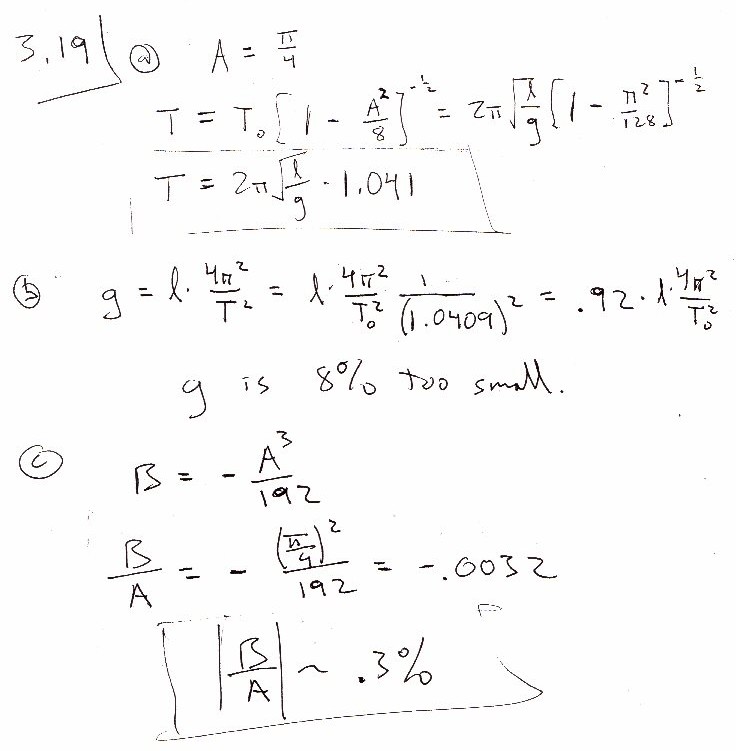 3.19 ⓐ A = π/4
T = T₀[1 - A²/8]^(-1/2) = 2π√(l/g) [1 - π²/128]^(-1/2)
T = 2π√(l/g) · 1.041
ⓑ g = l · 4π²/T² = l · 4π²/T₀² 1/(1.0409)² = .92 · l · 4π²/T₀²
g is 8% too small.
ⓒ B = - A³/192
B/A = - (π/4)²/192 = -.0032
|B/A| ~ .3%